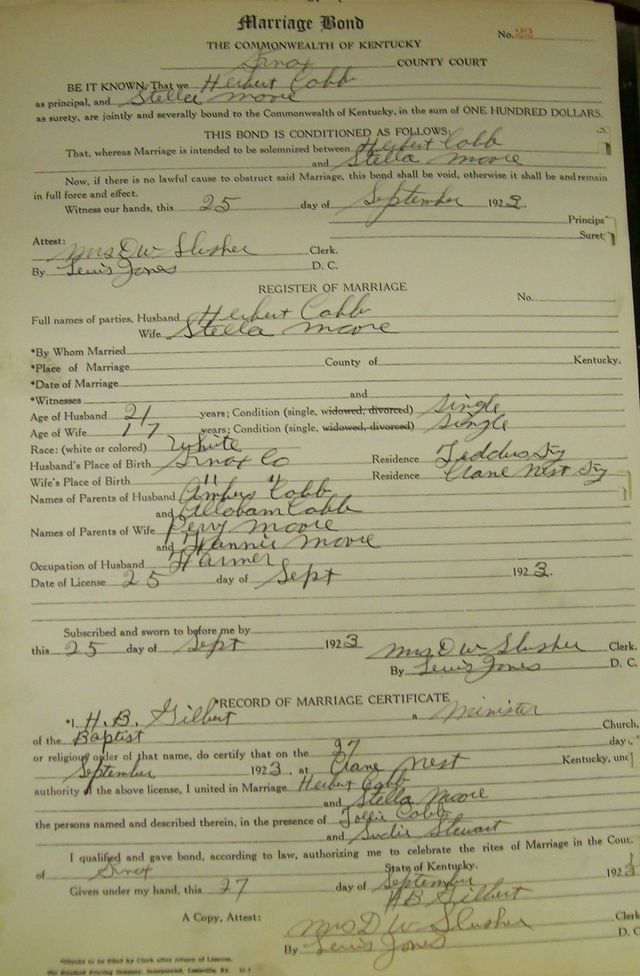 Marriage Bond
No. 22
THE COMMONWEALTH OF KENTUCKY
Knox COUNTY COURT
BE IT KNOWN, That we Herbert Cobb
as principal, and Stella Moore
as surety, are jointly and severally bound to the Commonwealth of Kentucky, in the sum of ONE HUNDRED DOLLARS.
THIS BOND IS CONDITIONED AS FOLLOWS:
That, whereas Marriage is intended to be solemnized between Herbert Cobb
and Stella Moore
Now, if there is no lawful cause to obstruct said Marriage, this bond shall be void, otherwise it shall be and remain
in full force and effect.
Witness our hands, this 25 day of September 1923.
Principa
Suret
Attest:
Mrs D W Slusher Clerk.
By Lewis Jones D. C.
REGISTER OF MARRIAGE
No.
Full names of parties, Husband Herbert Cobb
Wife Stella Moore
*By Whom Married
*Place of Marriage County of Kentucky.
*Date of Marriage
*Witnesses and
Age of Husband 21 years; Condition (single, widowed, divorced) Single
Age of Wife 17 years; Condition (single, widowed, divorced) Single
Race: (white or colored) White
Husband's Place of Birth Knox Co Residence Ky
Wife's Place of Birth " " Residence Crane Nest Ky
Names of Parents of Husband Cobb
and Cobb
Names of Parents of Wife Perry Moore
and Moore
Occupation of Husband Farmer
Date of License 25 day of Sept 1923.
Subscribed and sworn to before me by
this 25 day of Sept 1923 Mrs D W Slusher Clerk.
By Lewis Jones D. C.
RECORD OF MARRIAGE CERTIFICATE
*I, H. B. Gilbert a Minister
of the Baptist Church,
or religious order of that name, do certify that on the 27 day
September 1923. at Crane Nest Kentucky, unc
authority of the above license, I united in Marriage Herbert Cobb
and Stella Moore
the persons named and described therein, in the presence of Cobb
and Stewart
I qualified and gave bond, according to law, authorizing me to celebrate the rites of Marriage in the Cour
of Knox State of Kentucky.
Given under my hand, this 27 day of September 1923
H B Gilbert
A Copy, Attest: Mrs D W Slusher Clerk
By Lewis Jones D. C
*Blanks to be filled by Clerk after return of License.
The Standard Printing Company, Incorporated, Louisville, Ky.